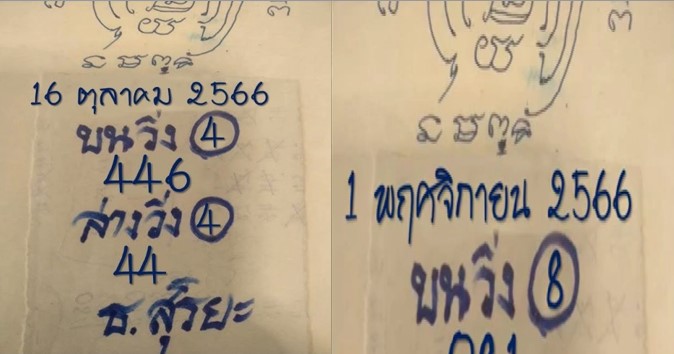 น ม พ ุ ท
16 ตุลาคม 2566
บนวิ่ง 4
446
ล่างวิ่ง 4
44
ธ. สุริยะ
น ม พ ุ ท
1 พฤศจิกายน 2566
บนวิ่ง 8